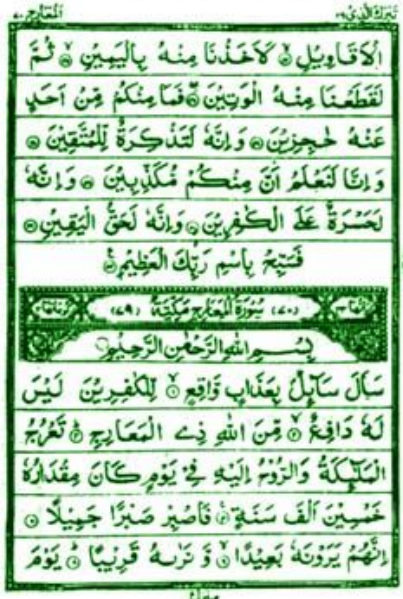 تَبٰرَكَ الَّذِیْ ٢٩ اَلْمَعَارِج ٧٠
الْاَقَاوِیْلِ ۙ لَاَخَذْنَا مِنْهُ بِالْیَمِیْنِ ۙ ثُمَّ
لَقَطَعْنَا مِنْهُ الْوَتِیْنَ ۖ فَمَا مِنْكُمْ مِّنْ اَحَدٍ
عَنْهُ حٰجِزِیْنَ وَاِنَّهٗ لَتَذْكِرَةٌ لِّلْمُتَّقِیْنَ
وَاِنَّا لَنَعْلَمُ اَنَّ مِنْكُمْ مُّكَذِّبِیْنَ وَاِنَّهٗ
لَحَسْرَةٌ عَلَی الْكٰفِرِیْنَ وَاِنَّهٗ لَحَقُّ الْیَقِیْنِ
فَسَبِّحْ بِاسْمِ رَبِّكَ الْعَظِیْمِ
(٧٠) سُوْرَةُ الْمَعَارِجِ مَكِّیَّةٌ (٧٩)
بِسْمِ اللهِ الرَّحْمٰنِ الرَّحِیْمِ
سَاَلَ سَآئِلٌۢ بِعَذَابٍ وَّاقِعٍ ١ لِّلْكٰفِرِیْنَ لَیْسَ
لَهٗ دَافِعٌ ٢ مِّنَ اللهِ ذِی الْمَعَارِجِ ٣ تَعْرُجُ
الْمَلٰٓئِكَةُ وَالرُّوْحُ اِلَیْهِ فِیْ یَوْمٍ كَانَ مِقْدَارُهٗ
خَمْسِیْنَ اَلْفَ سَنَةٍ ٤ فَاصْبِرْ صَبْرًا جَمِیْلًا ٥
اِنَّهُمْ یَرَوْنَهٗ بَعِیْدًا ٦ وَّ نَرٰىهُ قَرِیْبًا ٧ یَوْمَ